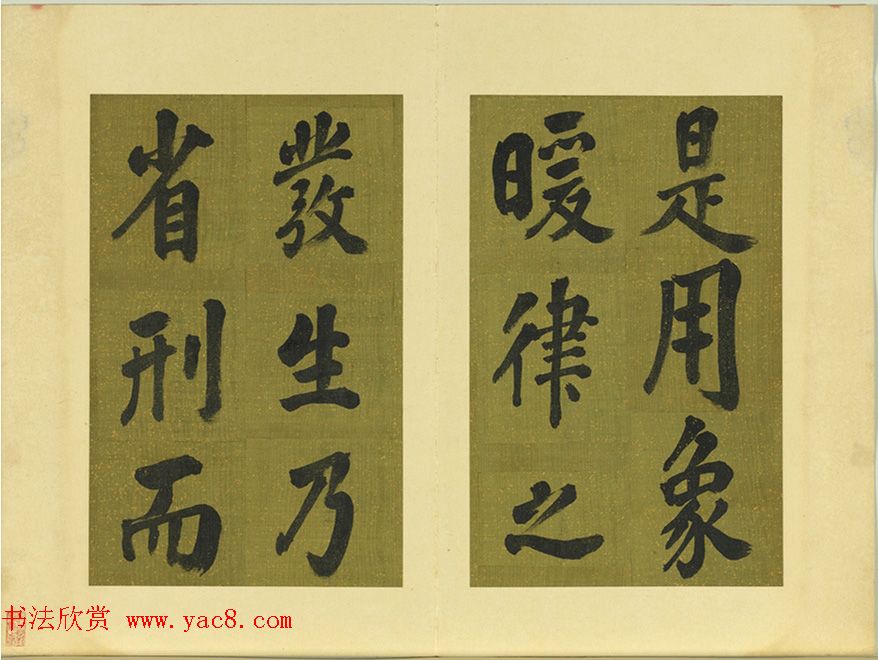 是用象
暖律之
發生乃
省刑而
书法欣赏 www.yac8.com